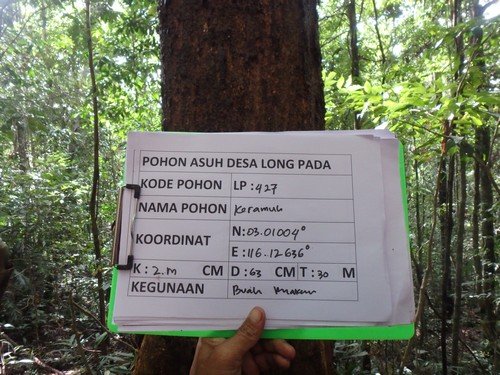 POHON ASUH DESA LONG PADA
KODE POHON LP : 427
NAMA POHON Keramuh
KOORDINAT N: 03.01004°
E: 116.12636°
K : 2.M CM D : 63 CM T : 30 M
KEGUNAAN Buah Makan